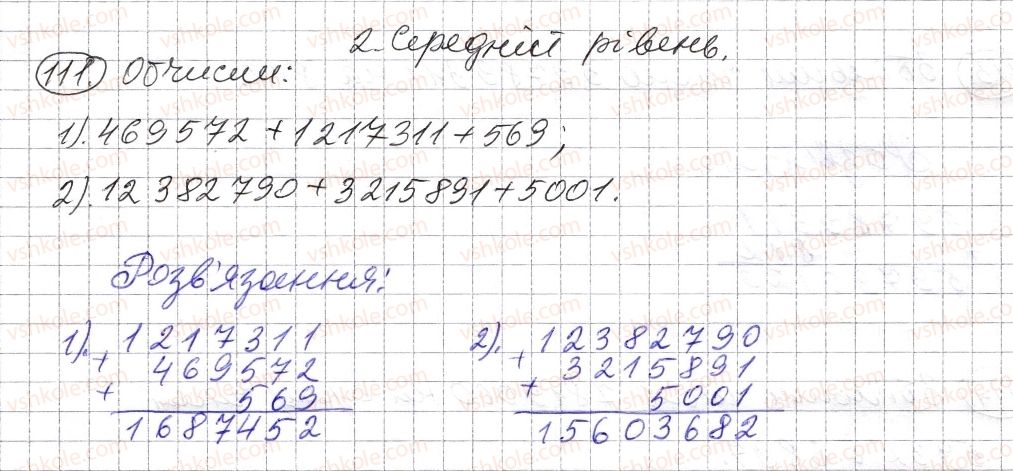 2. Середній рівень.
111. Обчисли:
1). 469572 + 1217311 + 569;
2). 12 382 790 + 3215891 + 5001.
Розв'язання:
1). 1217311
+ 469572
+ 569
1687452
2). 12382790
+ 3215891
+ 5001
15603682